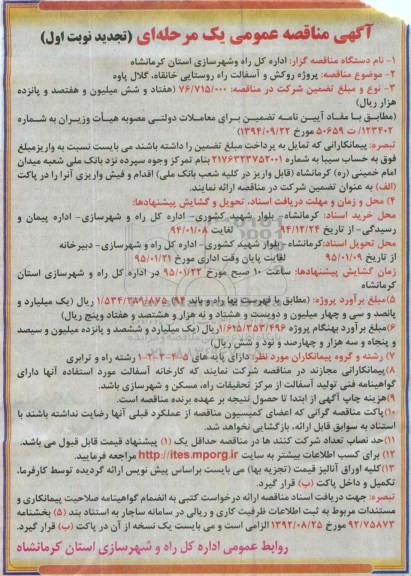 آگهی مناقصه عمومی یک مرحله‌ای (تجدید نوبت اول)
۱- نام دستگاه مناقصه گزار: اداره کل راه وشهرسازی استان کرمانشاه
۲- موضوع مناقصه: پروژه روکش و آسفالت راه روستایی خانقاه، گلال پاوه
۳- نوع و مبلغ تضمین شرکت در مناقصه: ۷۶/۷۱۵/۰۰۰ (هفتاد و شش میلیون و هفتصد و پانزده
هزار ریال)
(مطابق با مفاد آیین نامه تضمین برای معاملات دولتی مصوبه هیأت وزیران به شماره
۱۲۳۴۰۲/ ت ۵۰۶۵۹ مورخ ۱۳۹۴/۰۹/۲۲)
تبصره: پیمانکارانی که تمایل به پرداخت مبلغ تضمین را داشته باشند می بایست نسبت به واریزمبلغ
فوق به حساب سیبا به شماره ۲۱۷۶۳۲۳۷۵۲۰۰۱ بنام تمرکز وجوه سپرده نزد بانک ملی شعبه میدان
امام خمینی (ره) کرمانشاه (قابل واریز در کلیه شعب بانک ملی) اقدام و فیش واریزی آنرا در پاکت
(الف) به عنوان تضمین شرکت در مناقصه ارائه نمایند.
۴) محل و زمان و مهلت دریافت اسناد، تحویل و گشایش پیشنهادها:
محل خرید اسناد: کرمانشاه- بلوار شهید کشوری- اداره کل راه و شهرسازی- اداره پیمان و
رسیدگی- از تاریخ ۹۴/۱۲/۲۴ لغایت ۹۴/۰۱/۰۸
محل تحویل اسناد:کرمانشاه- بلوار شهید کشوری- اداره کل راه و شهرسازی- دبیرخانه
از تاریخ ۹۵/۰۱/۰۹ لغایت پایان وقت اداری مورخ ۹۵/۰۱/۲۱
زمان گشایش پیشنهادها: ساعت ۱۰ صبح مورخ ۹۵/۰۱/۲۲ در اداره کل راه و شهرسازی استان
کرمانشاه
۵)مبلغ برآورد پروژه: (مطابق با فهرست بها راه و باند ۹۴) ۱/۵۳۴/۲۸۹/۸۷۵ ریال (یک میلیارد و
پانصد و سی و چهار میلیون و دویست و هشتاد و نه هزار و هشتصد و هفتاد وپنج ریال)
۶)مبلغ برآورد بهنگام پروژه ۱/۶۱۵/۳۵۳/۴۹۶ریال (یک میلیارد و ششصد و پانزده میلیون و سیصد
و پنجاه و سه هزار و چهارصد و نود و شش ریال)
۷) رشته و گروه پیمانکاران مورد نظر: دارای پایه های ۵-۴-۳-۲-۱ رشته راه و ترابری
۸)پیمانکارانی مجازند در مناقصه شرکت نمایند که کارخانه آسفالت مورد استفاده آنها دارای
گواهینامه فنی تولید آسفالت از مرکز تحقیقات راه، مسکن و شهرسازی باشد.
۹)هزینه چاپ آگهی از ابتدا تا حصول نتیجه بر عهده برنده مناقصه است.
۱۰) پاکت مناقصه گرانی که اعضای کمیسیون مناقصه از عملکرد قبلی آنها رضایت نداشته باشند با
استناد به سوابق قابل ارائه، بازگشایی نخواهد شد.
۱۱)حد نصاب تعداد شرکت کنند ها در مناقصه حداقل یک (۱) پیشنهاد قیمت قابل قبول می باشد.
۱۲) برای کسب اطلاعات بیشتر به سایت http://ites.mporg.ir مراجعه فرمایید.
۱۳)کلیه اوراق آنالیز قیمت (تجزیه بها) می بایست براساس پیش نویس ارائه گردیده توسط کارفرما،
تکمیل و داخل پاکت (ب) قرار گیرد.
تبصره: جهت دریافت اسناد مناقصه ارائه درخواست کتبی به انضمام گواهینامه صلاحیت پیمانکاری و
مستندات مربوط به ثبت اطلاعات ظرفیت کاری و ریالی در سامانه ساجار به استناد بند (۵) بخشنامه
۹۲/۷۵۸۷۳ مورخ ۱۳۹۲/۰۸/۲۵ الزامی است و می بایست یک نسخه از آن در پاکت (ب) قرار گیرد.
روابط عمومی اداره کل راه و شهرسازی استان کرمانشاه